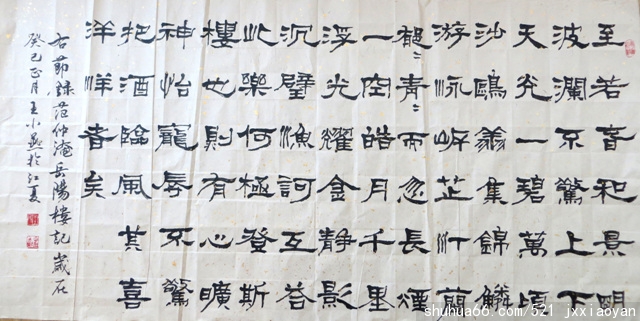 至若春和景明
波瀾不驚上下
天光一碧萬頃
沙鷗翔集錦鱗
游泳岸芷汀蘭
郁〻青〻而或長煙
一空皓月千里
浮光耀金靜影
沉璧漁謌互答
此樂何極登斯
樓也則有心曠
神怡寵辱不驚
把酒臨風其喜
洋洋者矣
右節錄范仲淹岳陽樓記歲在
癸巳正月王小燕於江夏
shuhua66.com/521 jxxiaoyan